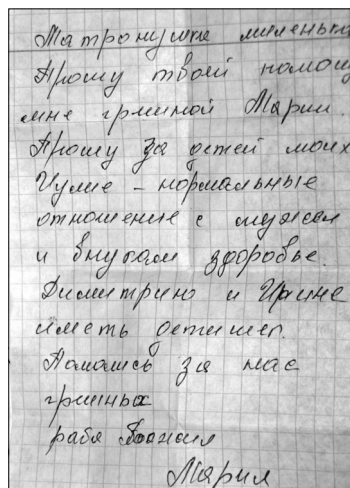 Матронушка миленька
Прошу твоей помощ
мне грешной Марии.
Прошу за детей моих
Юлие - нормальные
отношение с мужем
и внукам здоровье.
Димитрию и Ирине
иметь детишек.
Помолись за нас
грешных
раба Божия
Мария